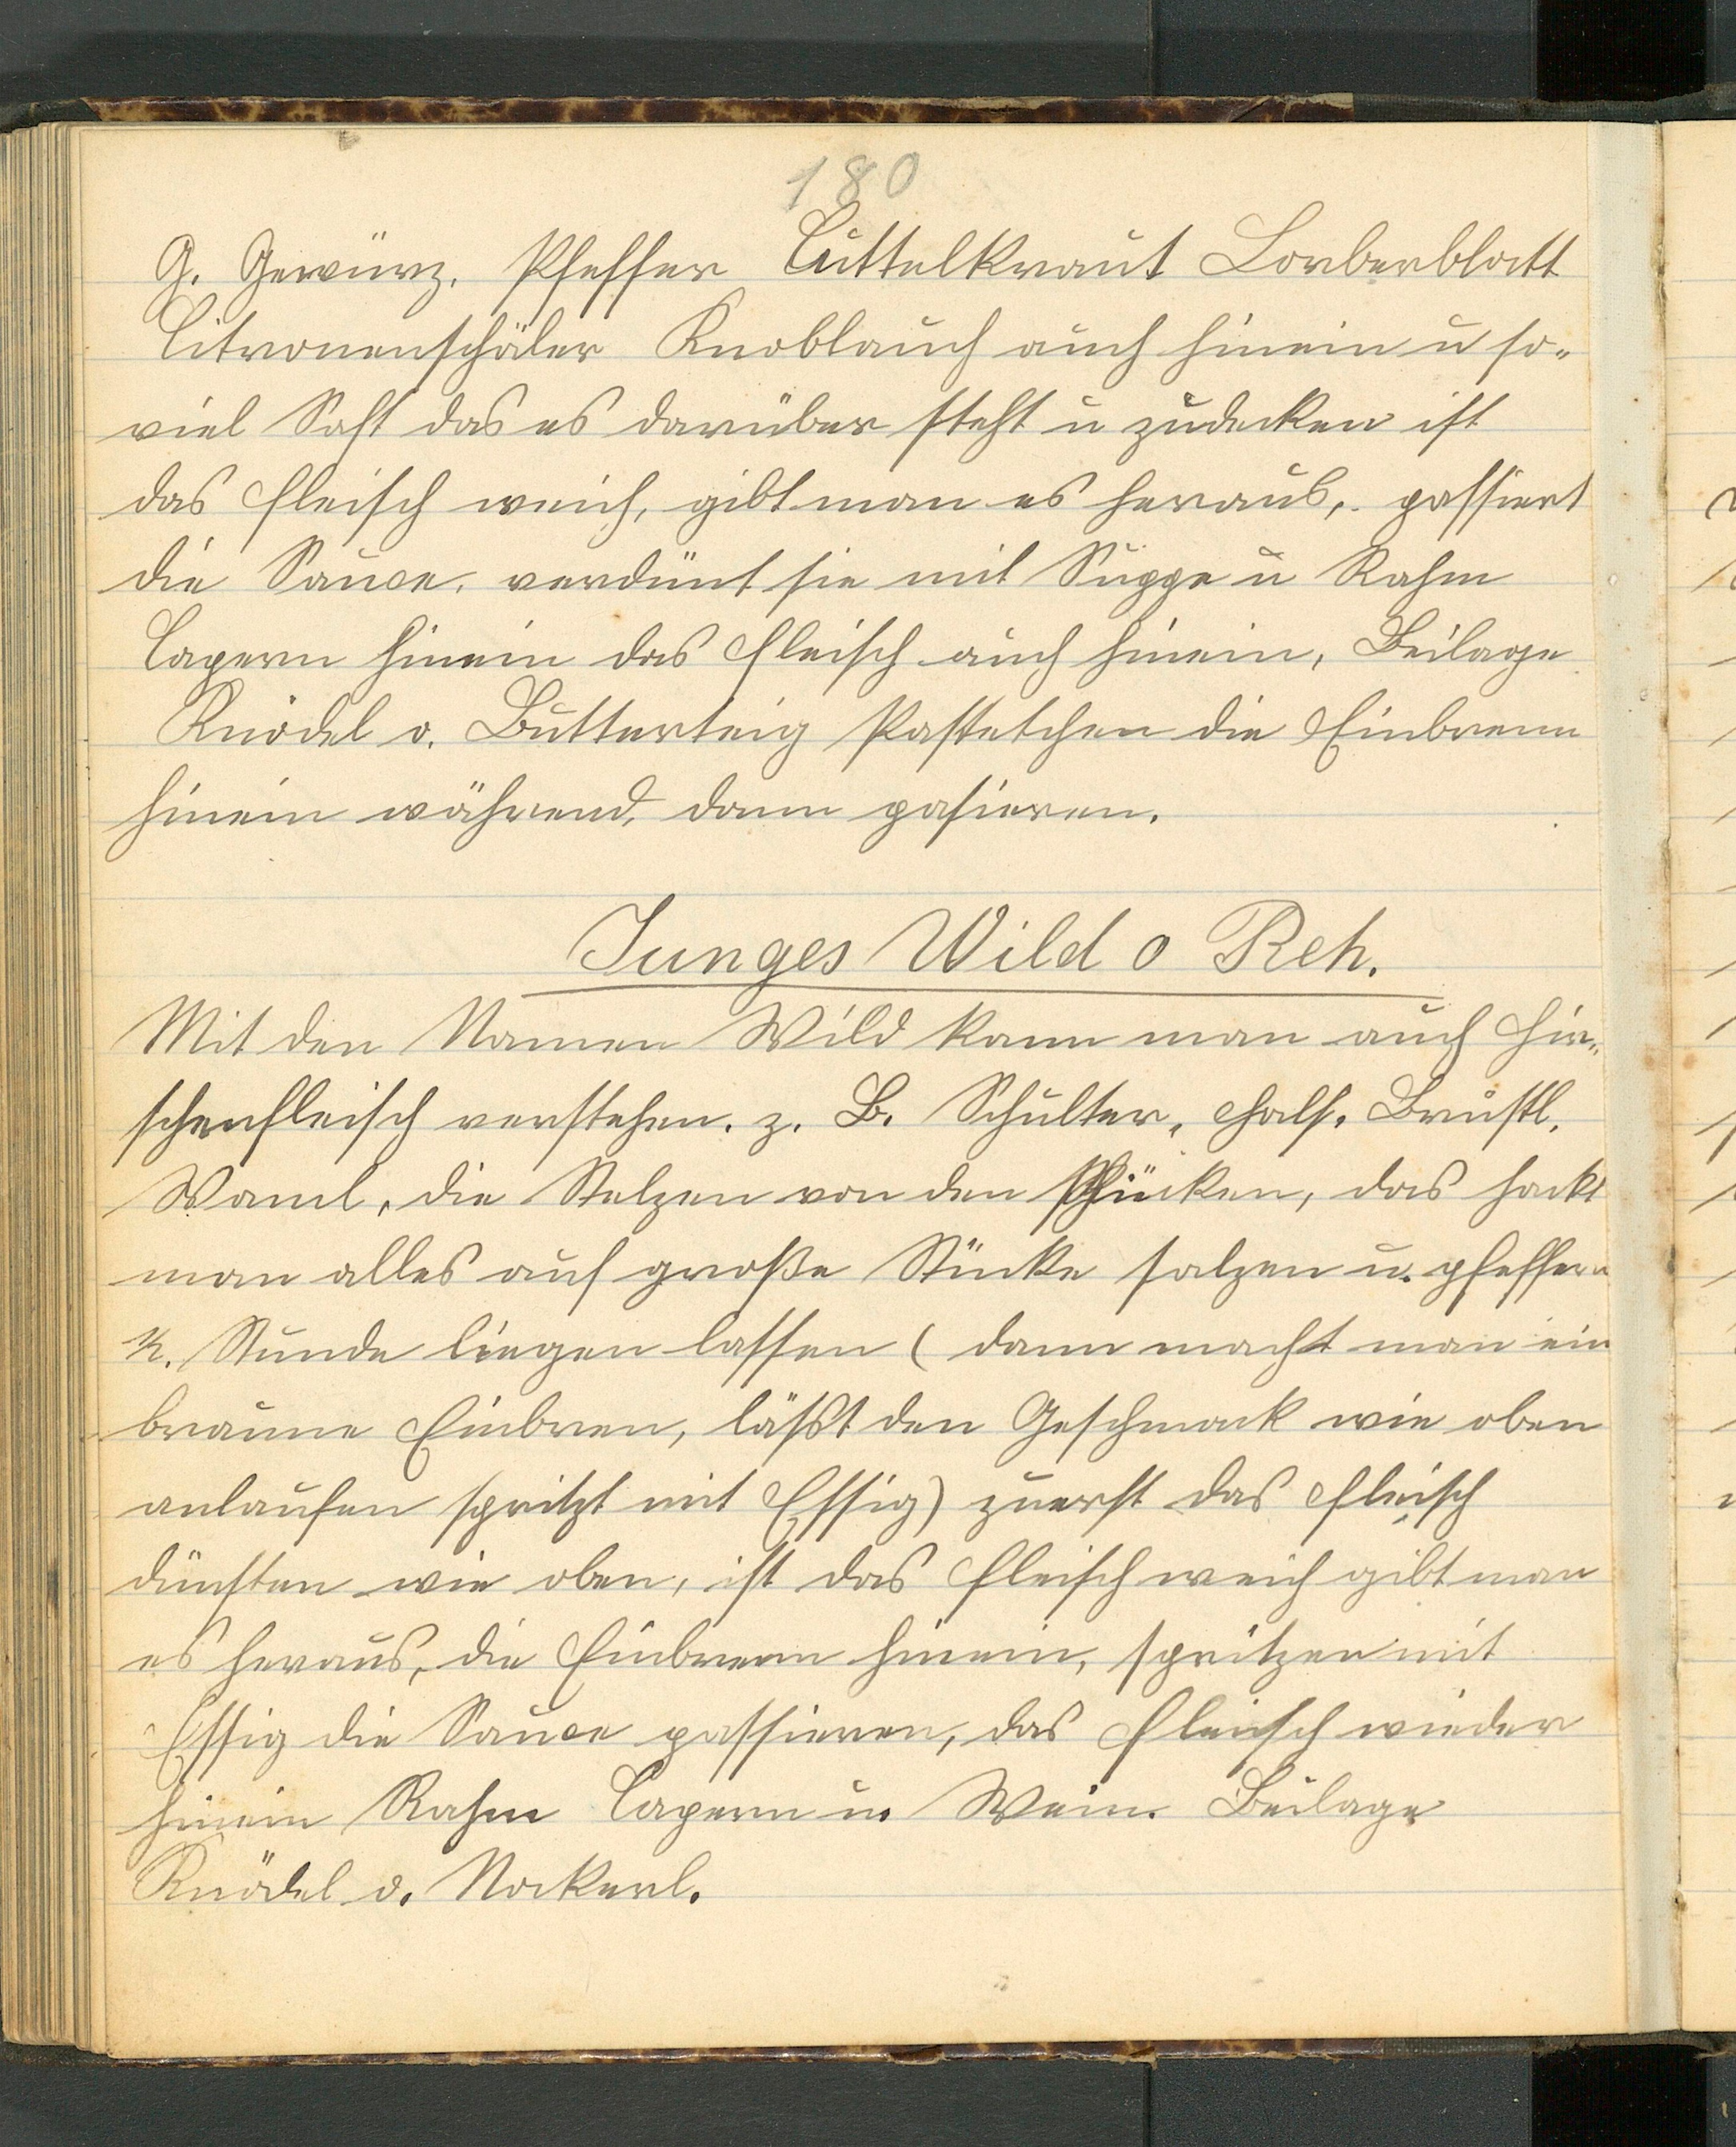 180
G. Gewürz, Pfeffer Cuttelkraut Lorberblatt
Citronenschäler Knoblauch auch hinein u so-
viel Saft das es darüber steht u zudecken ist
das Fleisch weich, gibt man es heraus, passiert
die Sauce, verdünt sie mit Suppe u Rahm
Capern hinein das Fleisch auch hinein, Beilage
Knödel o. Butterteig Pastetchen die Einbrenn
hinein während, dann pasieren.
Junges Wild o Reh.
Mit den Namen Wild kann man auch Hir-
schenfleisch verstehen. z. B. Schulter, Hals, Brüstl,
Waml, die Stelzen von den Rücken, das hackt
man alles auf große Stücke salzen u. pfeffern
Stunde liegen lassen (dann macht man ein
braune Einbren, läßt den Geschmack wie oben
anlaufen spritzt mit Essig) zuerst das Fleisch
dünsten wie oben, ist das Fleisch weich gibt man
es heraus, die Einbrenn hinein, spritzen mit
Essig die Sauce passieren, das Fleisch wieder
hinein Rahm Capern u. Wein. Beilage
Knödel o. Nockerl.